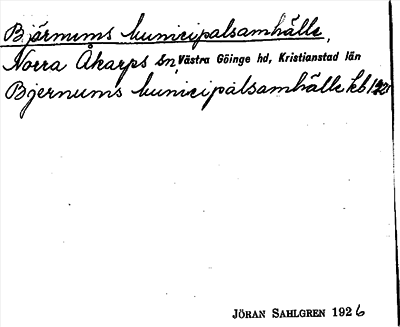 Bjärnums municipalsamhälle,
Norra Åkarps sn, Västra Göinge hd, Kristianstad län
Bjernums municipalsamhälle kb
JÖRAN SAHLGREN 1926